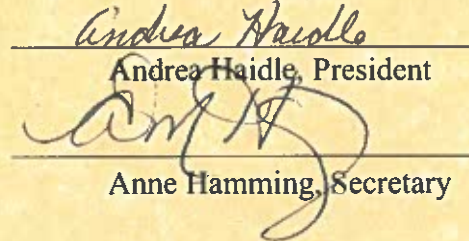 Andrea Haidle
Andrea Haidle, President
Anne Hamming, Secretary